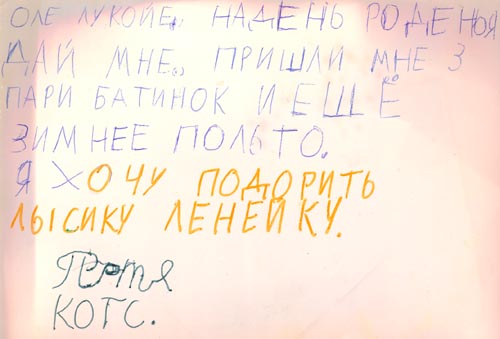 ОЛЕ ЛУКОЙЕ,, НАДЕНЬ РОДЕНОЯ
ДАЙ МНЕ,, ПРИШЛИ МНЕ 3
ПАРИ БАТИНОК И ЕЩЁ
ЗИМНЕЕ ПОЛЬТО.
Я ХОЧУ ПОДОРИТЬ
ЛЫСИКУ ЛЕНЕЙКУ.
Петя
КОТС.